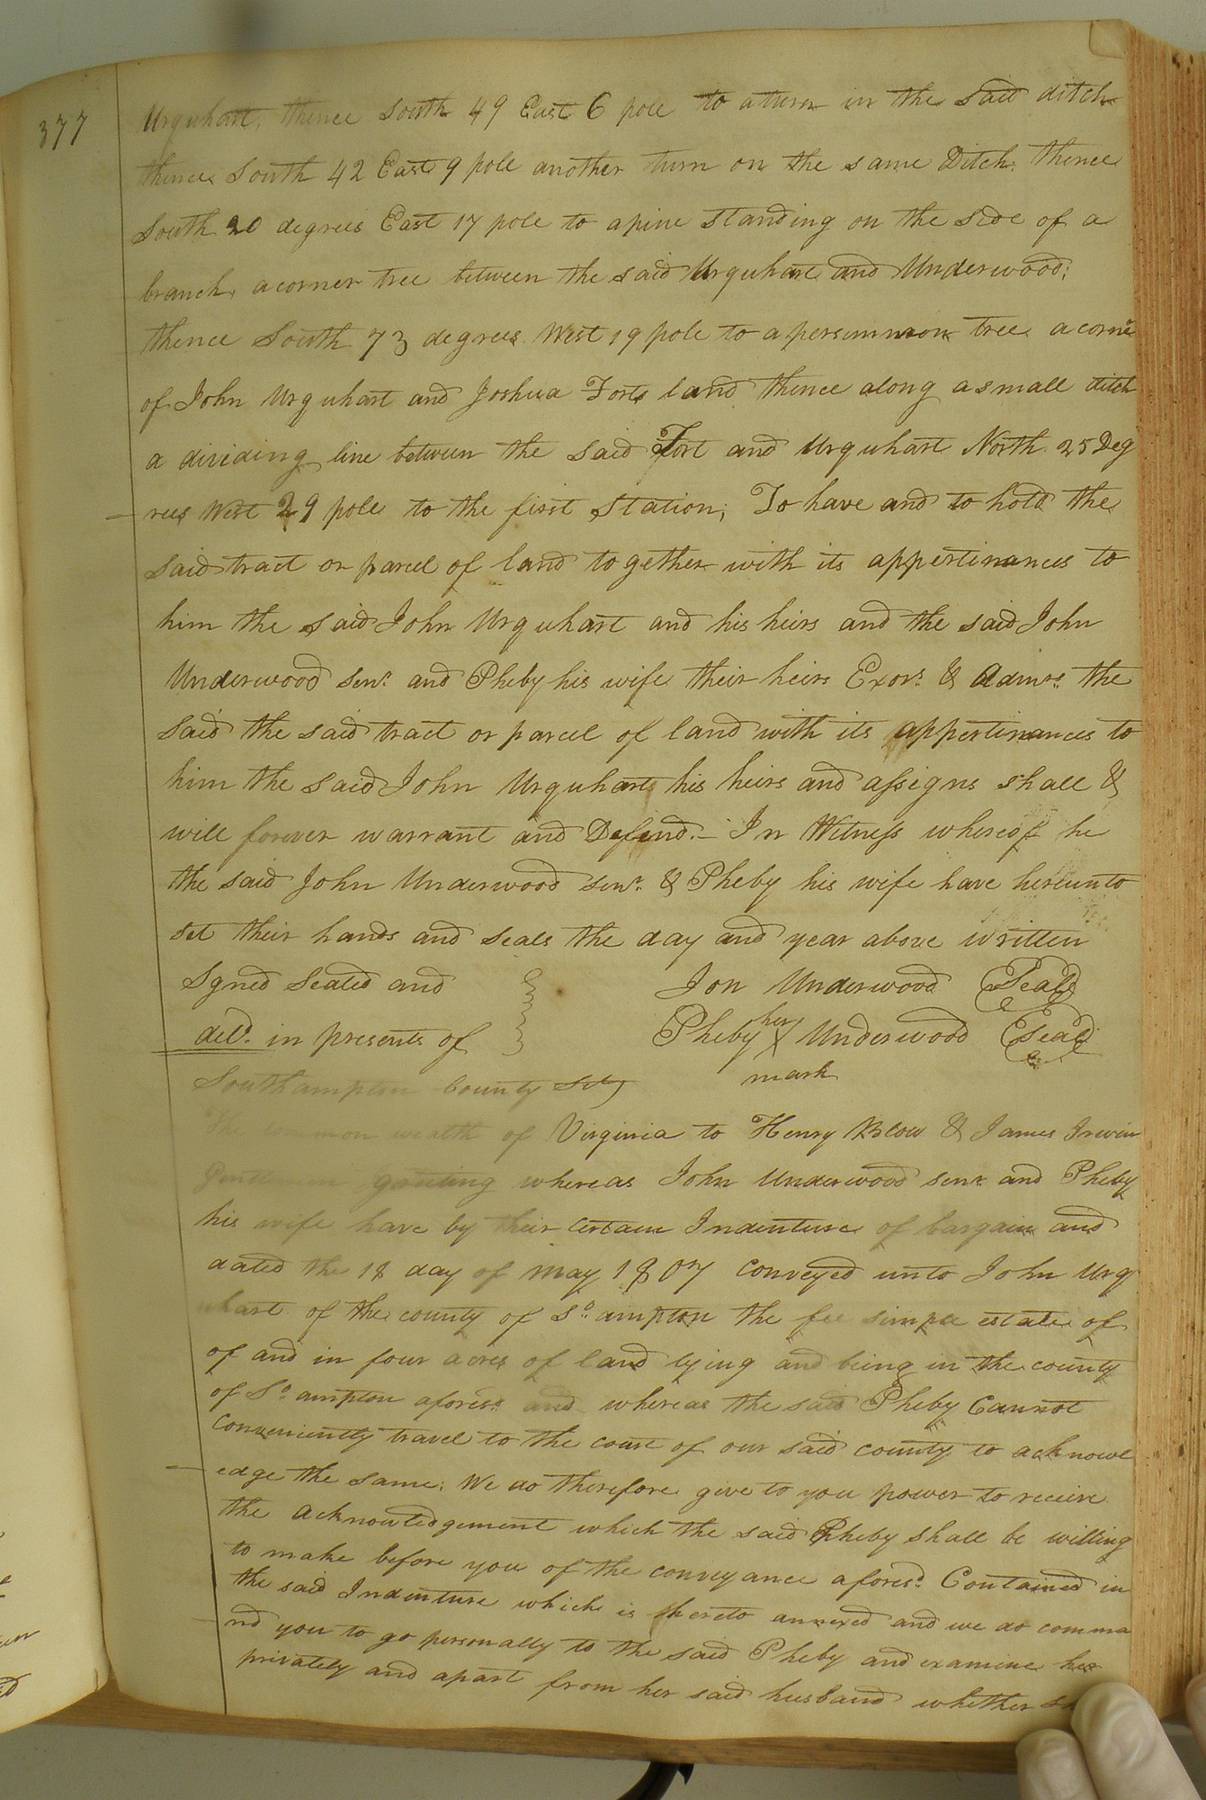 377
Urquhart, thence South 49 East 6 pole to a turn in the said ditch
thence South 42 East 9 pole another turn on the same Ditch, thence
South 20 degrees East 17 pole to a pine standing on the side of a
branch, a corner tree between the said Urquhart and Underwood;
thence South 73 degrees West 19 pole to a persimmon tree a corne
of John Urquhart and Joshua Forts land thence along a small ditch
a dividing line between the said Fort and Urquhart North 25 Deg
rees West 29 pole to the first Station, To have and to hold the
said tract or parcel of land together with its appertinances to
him the said John Urquhart and his heirs and the said John
Underwood senr. and Pheby his wife their heirs Exors. & Admrs. the
said the said tract or parcel of land with its appertinances to
him the said John Urquhart his heirs and assigns shall &
will forever warrant and Defend.- In Witness whereof he
the said John Underwood Senr. & Pheby his wife have hereunto
set their hands and seals the day and year above written
Sgned Sealed and Jon Underwood Seal
deld. in presents of Pheby her X Underwood Seal
mark
Southampton County
The common wealth of Virginia to Henry Blow & James Irwin
Gentlemen whereas John Underwood senr and Pheby
his wife have by their certain Indenture of bargain and
dated the 18 day of May 1807 conveyed unto John Urq
uhart of the county of So. ampton the fee simple estate of
of and in four acres of land lying and being in the county
of So. ampton afores. and whereas the said Pheby Cannot
conveniently travel to the court of our said county to acknowl
edge the same; We do therefore give to you power to receive
the acknowledgement which the said Pheby shall be willing
to make before you of the conveyance aforesd. Contained in
the said Indenture which is thereto annexed and we do comma
nd you to go personally to the said Pheby and examine her
privately and apart from her said husband whether